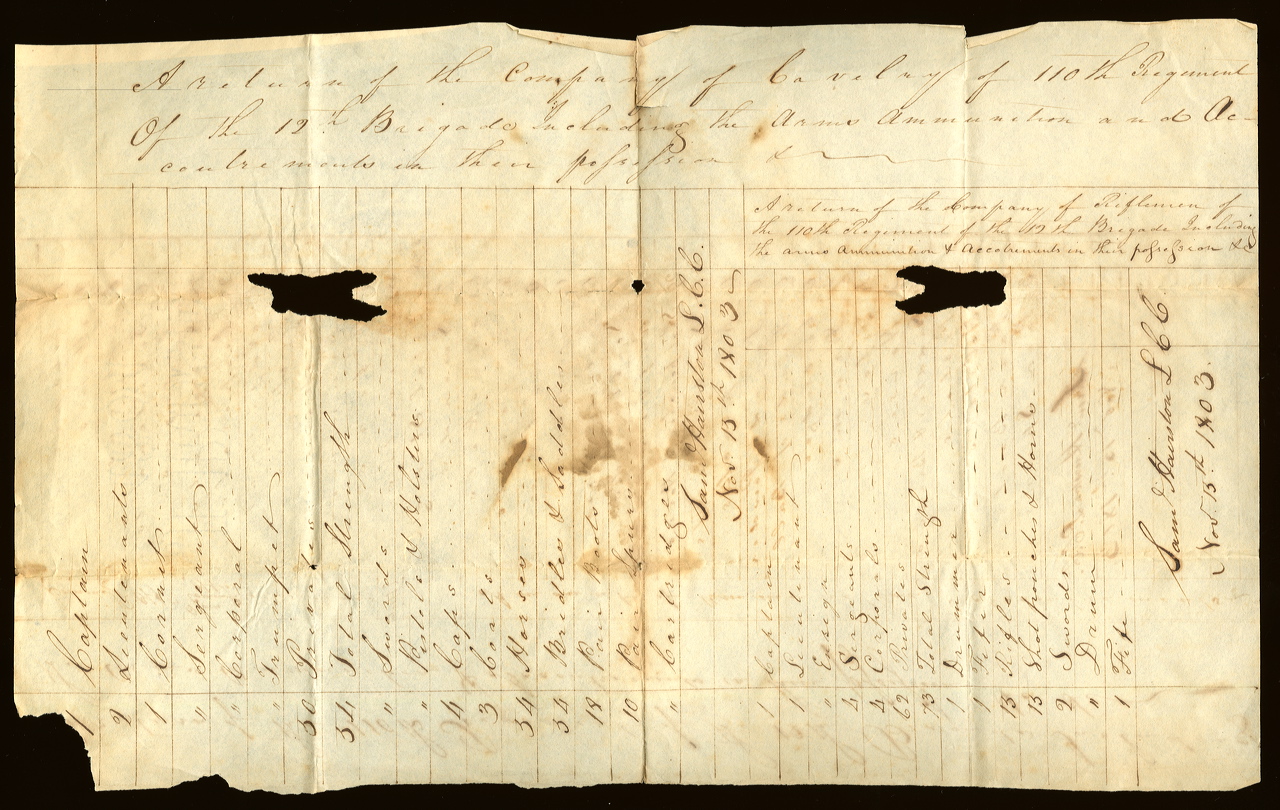 A return of the Company of Cavelry of 110th Regiment
Of the 12th Brigade Including the Arms Ammunition and Ac-
coutrements in their possession &
Captain 1
Lieutenants 2
Cornet 1
Sergeant "
Corporal "
Trumpet "
Privates 50
Total Strength 54
Swords "
Pistols & Holsters "
Caps 4
Coats 3
Horses 54
Bridles & Saddles 54
Pair Boots 18
Pair Spurs 10
Cartridges "
Samˡ Hairston L.C.C.
Nov. 15th 1803
A return of the Company of Riflemen of
the 110th Regiment of the 12th Brigade Including
the arms Ammunition & Accotrements in their possession &c
Captain 1
Lieutenant 1
Ensign "
Sergeants 4
Corporals 4
Privates 62
Total Stringh 73
Drummer 1
Fifer 1
Rifles 13
Shot pouches & Horns 13
Swords 2
Drum "
Fife 1
Samˡ Hairston L C C
Nov. 15th 1803